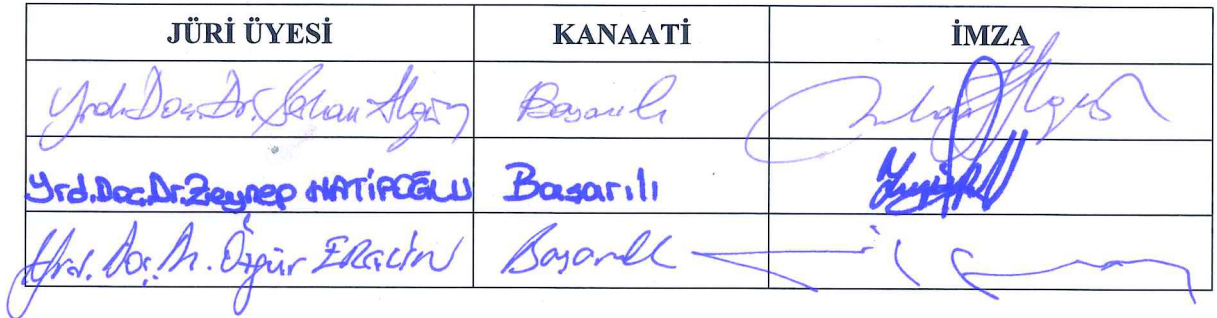 JÜRİ ÜYESİ KANAATİ İMZA
Yrd. Doç. Dr. Başarılı
Yrd. Doç. Dr. Zeynep HATİPOĞLU Başarılı
Yrd. Doç. Dr. Özgür ERÇETİN Başarılı